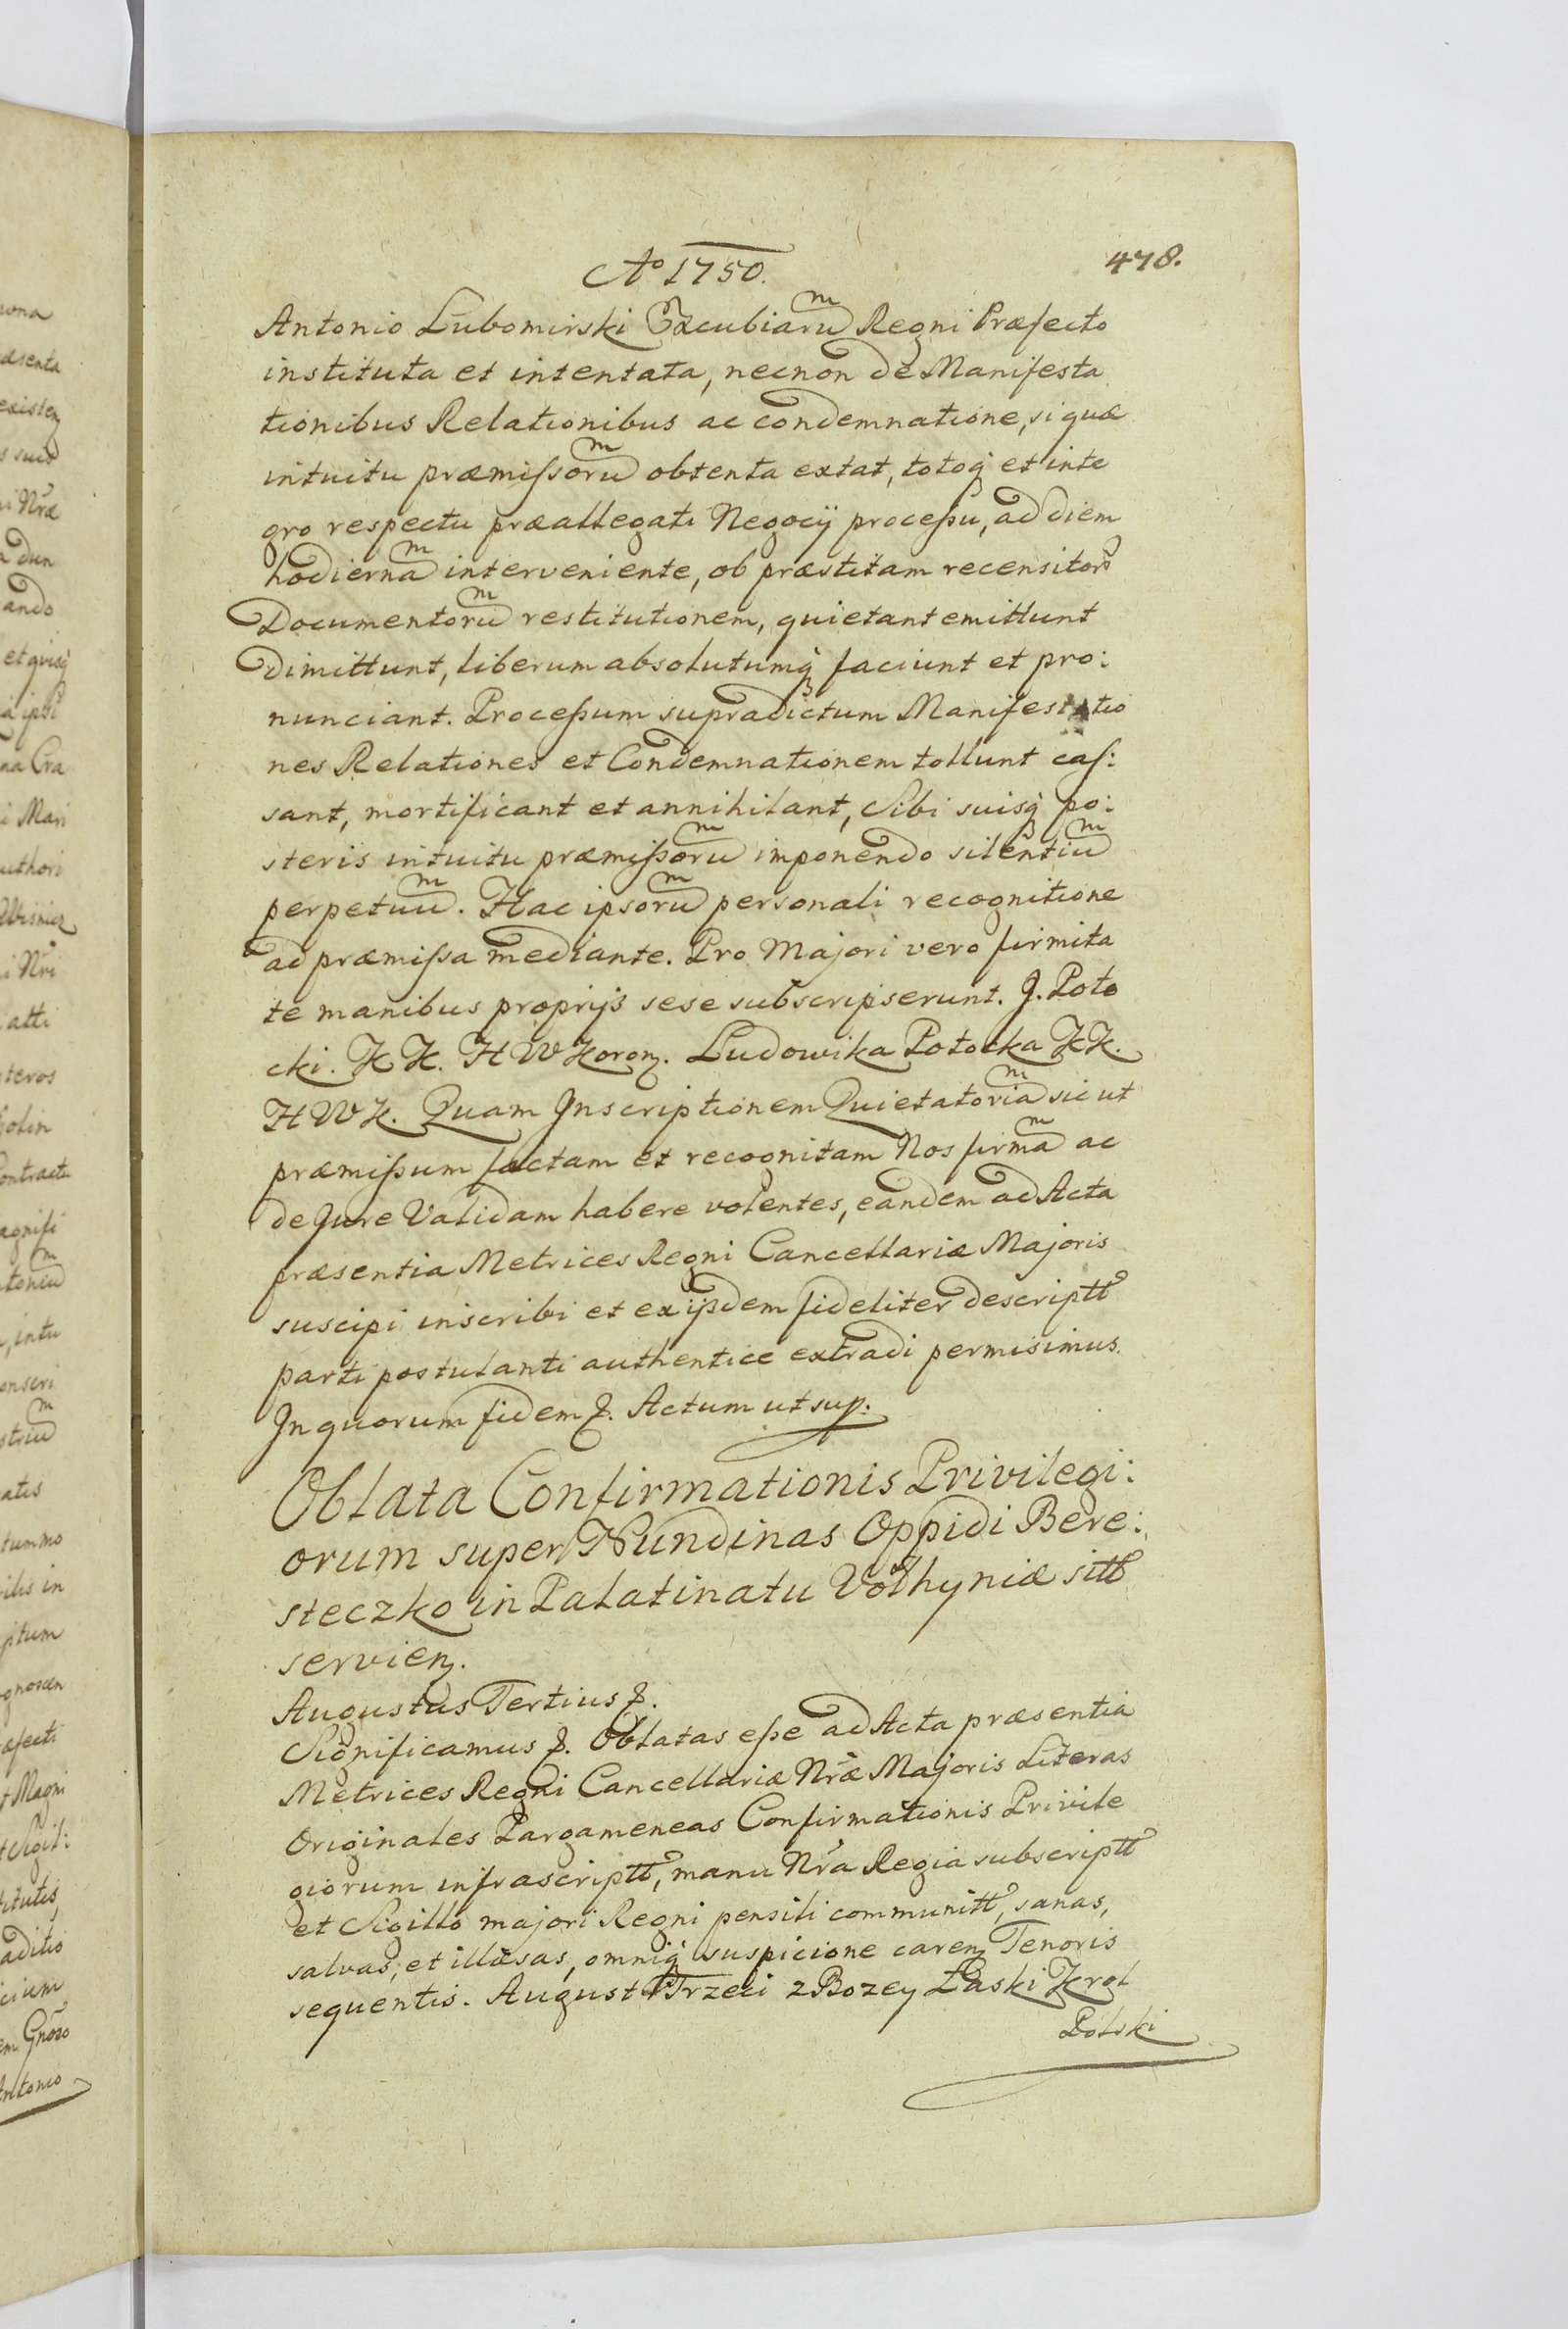 Aº 1750.
478.
Antonio Lubomirski Excubiaruͫ Regni Præfecto
instituta et intentata, necnon de Manifesta
tionibus Relationibus ac condemnatione, si quæ
intuitu præmissoruͫ obtenta extat, totoq̃ et inte
gro respectu præallegati Negocij processu, ad diem
hodiernaͫ interveniente, ob præstitam recensitorũ
Documentoruͫ restitutionem, quietant emittunt
dimittunt, liberum absolutumq̃ faciunt et pro:
nunciant. Processum supradictum Manifestatio
nes Relationes et Condemnationem tollunt cas:
sant, mortificant et annihilant, Sibi suisq̃ po:
steris intuitu præmissoruͫ imponendo silentiuͫ
perpetuuͫ. Hac ipsoruͫ personali recognitione
ad præmissa mediante. Pro Majori vero firmita
te manibus proprijs sese subscripserunt. J. Poto
cki. K K. H W Koron. Ludowika Potocka K K.
H W K. Quam Inscriptionem Quietatoriaͫ sic ut
præmissum factam et recognitam Nos firmaͫ ac
de Jure Validam habere volentes, eandem ad Acta
præsentia Metrices Regni Cancellariæ Majoris
suscipi inscribi et ex ijsdem fideliter descriptt
parti postulanti authentice extradi permisimus.
In quorum fidem &. Actum ut sup:
Oblata Confirmationis Privilegi:
orum super Nundinas Oppidi Bere:
steczko in Palatinatu Volhyniæ sitt
servien.
Augustus Tertius &.
Significamus &. Oblatas esse ad Acta præsentia
Metrices Regni Cancellariæ Nr̃æ Majoris Literas
Originales Pargameneas Confirmationis Privile
giorum infrascriptt, manu Nr̃a Regia subscriptt
et Sigillo majori Regni pensili communitt, sanas,
salvas, et illæsas, omniq̃ suspicione caren Tenoris
sequentis. August Trzeci z Bozey Łaski Krol
Polski